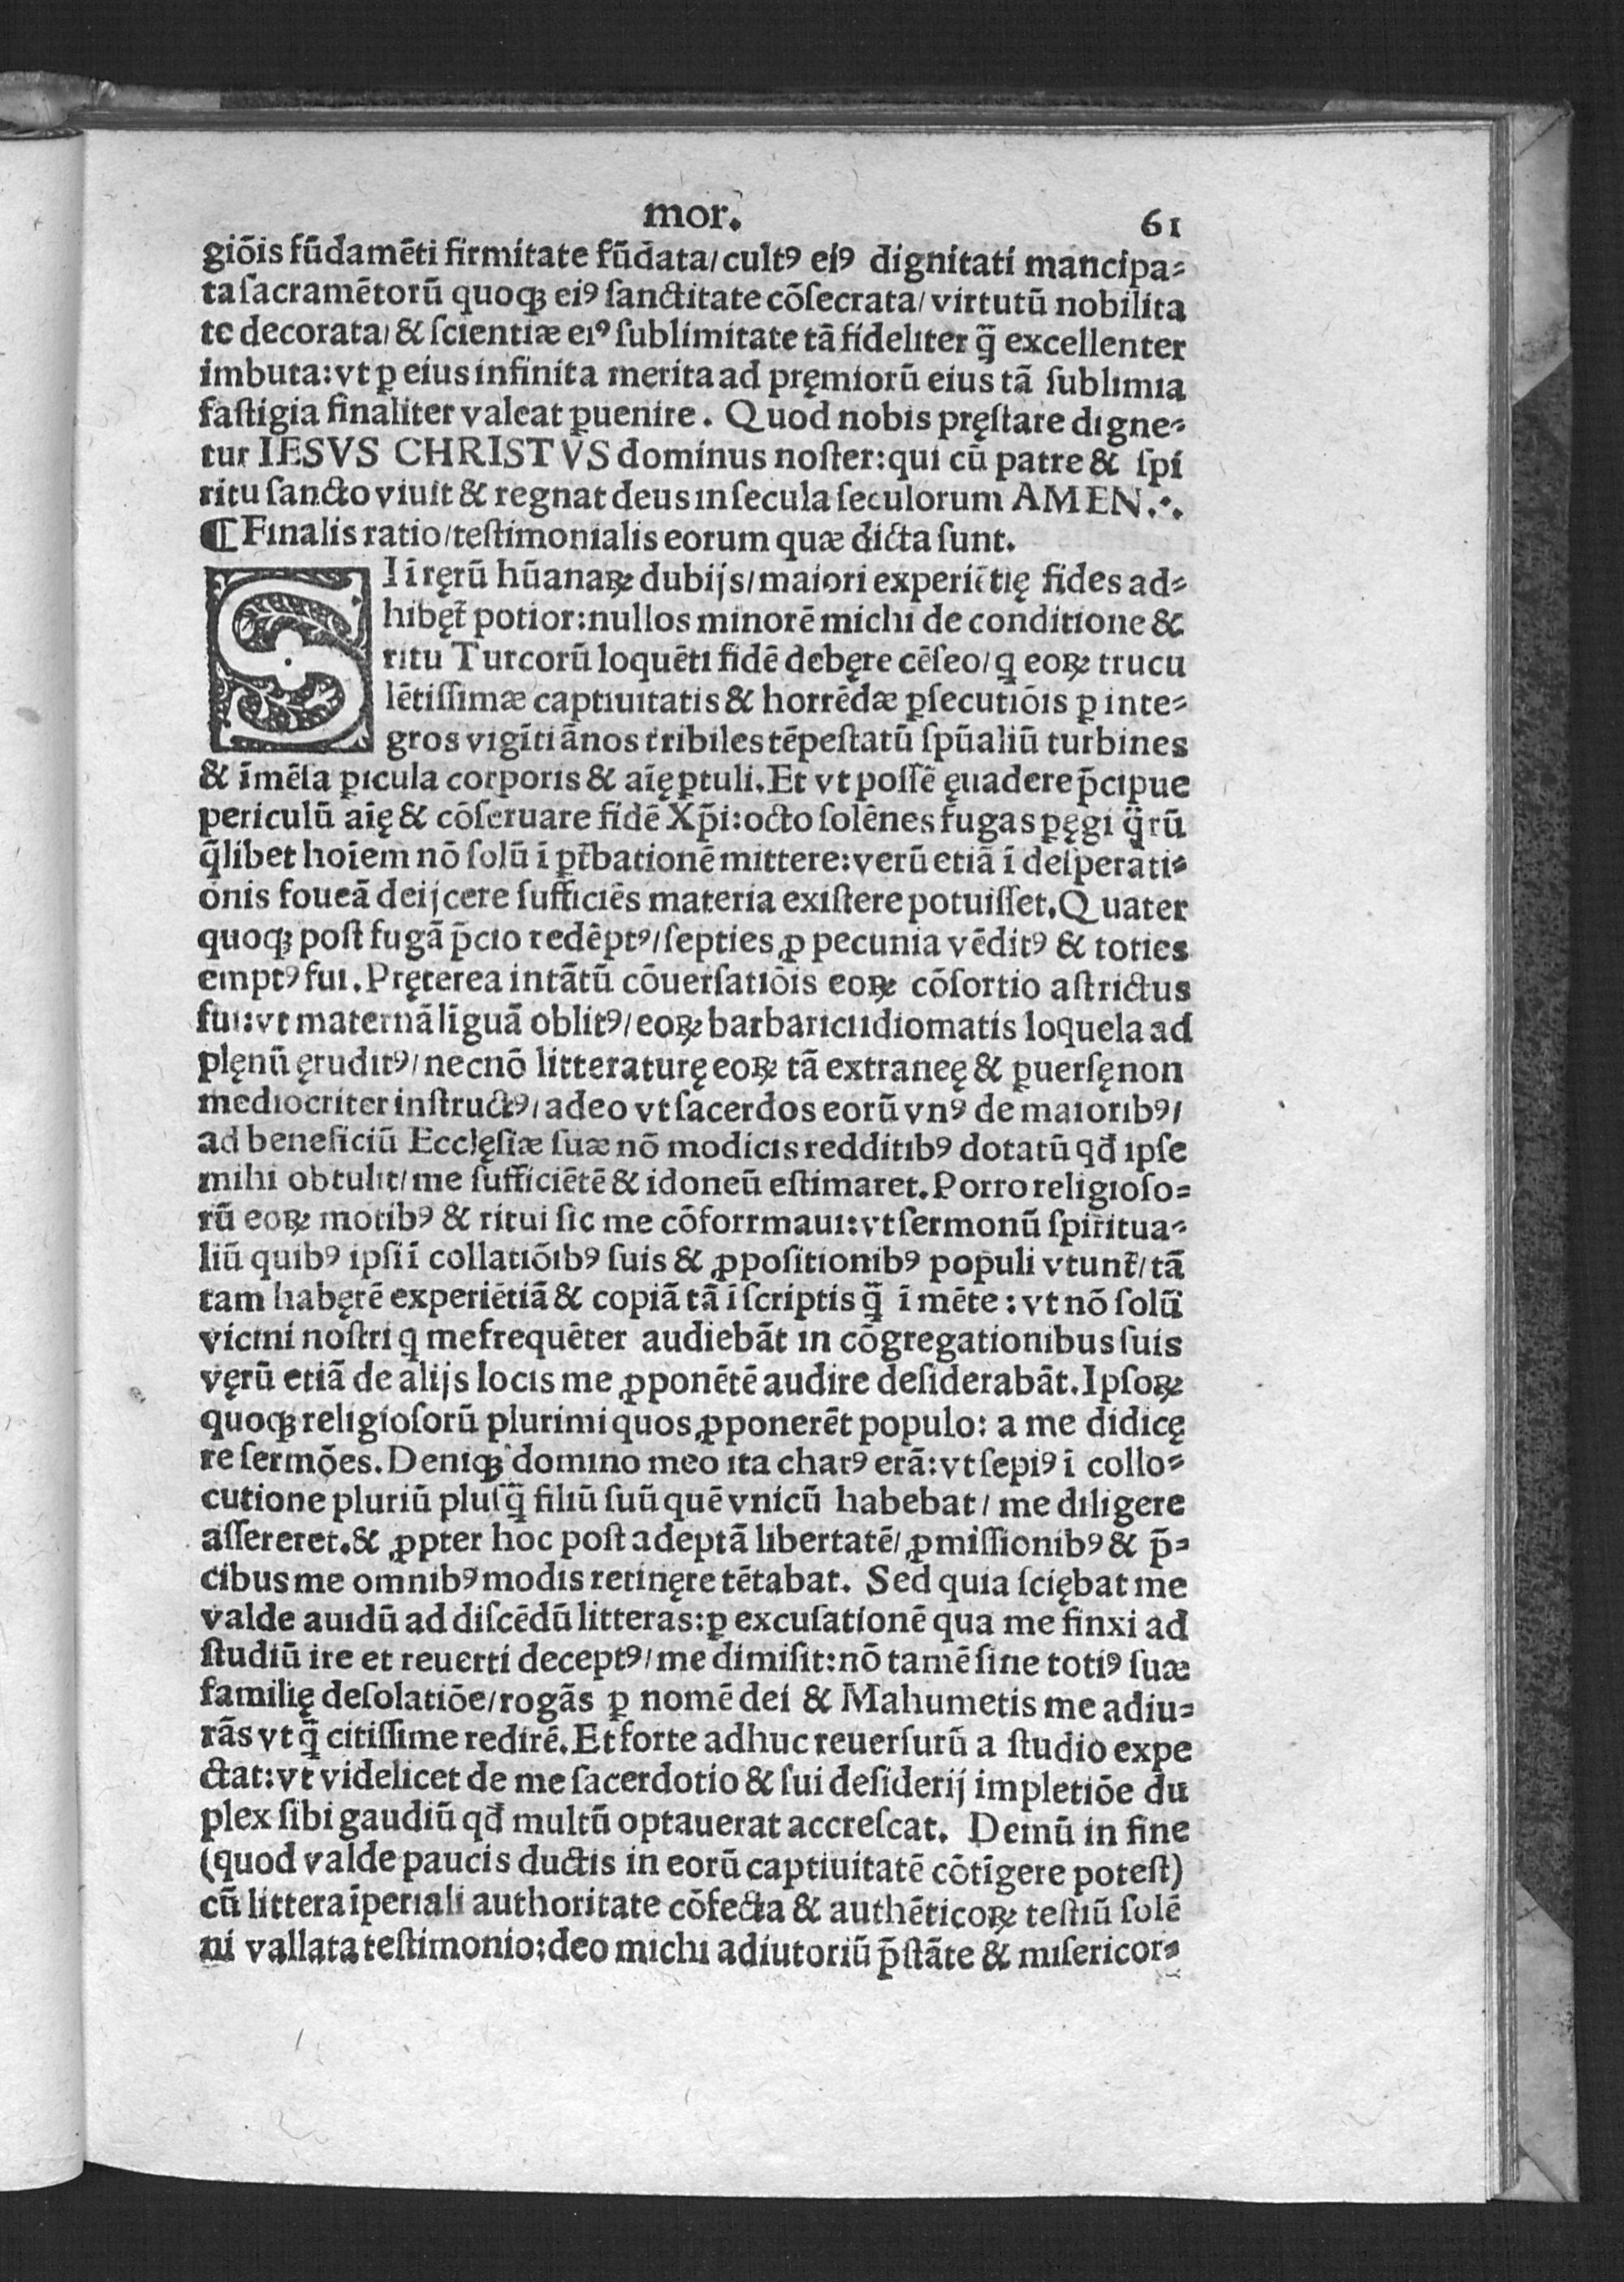 mor.
61
giõis fũdamẽti firmitate fũdata/cultꝰ eiꝰ dignitati mancipa⸗
ta sacramẽtorũ quoqꝫ eiꝰ ſanctitate cõſecrata/ virtutũ nobilita
te decorata/ & ſcientiæ eiꝰ ſublimitate tã fideliter q̃ excellenter
imbuta: vt ꝑ eius infinita merita ad pręmiorũ eius tã ſublimia
faſtigia finaliter valeat ꝑuenire. Quod nobis pręſtare digne⸗
tur IESVS CHRISTVS dominus noſter: qui cũ patre & ſpi
ritu ſancto viuit & regnat deus in ſecula ſeculorum AMEN.⁖
¶ Finalis ratio/teſtimonialis eorum quæ dicta ſunt.
SI ĩ ręrũ hũanaꝝ dubijs/maiori experiẽtię fides ad⸗
hibęt̃ potior: nullos minorẽ michi de conditione &
ritu Turcorũ loquẽti fidẽ debęre cẽſeo/ q̃ eoꝝ trucu
lẽtiſſimæ captiuitatis & horrẽdæ ꝑſecutiõis ꝑ inte⸗
gros vigĩti ãnos t̃ribiles tẽpeſtatũ ſpũaliũ turbines
& ĩmẽſa ꝑicula corporis & aĩę ꝑtuli. Et vt poſſẽ ęuadere p̃cipue
periculũ aĩę & cõſeruare fidẽ Xp̃i: octo ſolẽnes fugas ꝑęgi q̃rũ
q̃libet hoĩem nõ ſolũ ĩ ꝑt̃bationẽ mittere: verũ etiã ĩ deſperati⸗
onis foueã deijcere ſufficiẽs materia exiſtere potuiſſet. Quater
quoqꝫ poſt fugã p̃cio redẽptꝰ/ſepties ꝓ pecunia vẽditꝰ & toties
emptꝰ fui. Pręterea intãtũ cõuerſatiõis eoꝝ cõſortio aſtrictus
fui: vt maternã lĩguã oblitꝰ/eoꝝ barbarici idiomatis loquela ad
plęnũ ęruditꝰ/necnõ litteraturę eoꝝ tã extraneę & ꝑuerſę non
mediocriter inſtructꝰ/adeo vt ſacerdos eorũ vnꝰ de maioribꝰ/
ad beneficiũ Eccleſiæ ſuæ nõ modicis redditibꝰ dotatũ qđ ipſe
mihi obtulit/me ſufficiẽtẽ & idoneũ eſtimaret. Porro religioſo⸗
rũ eoꝝ motibꝰ & ritui ſic me cõforrmaui: vt ſermonũ ſpiritua⸗
liũ quibꝰ ipſi ĩ collatiõibꝰ ſuis & ꝓpoſitionibꝰ populi vtunt̃/tã
tam habęrẽ experiẽtiã & copiã tã ĩ ſcriptis q̃ ĩ mẽte: vt nõ ſolũ
vicini noſtri q me frequẽter audiebãt in cõgregationibus ſuis
vęrũ etiã de alijs locis me ꝓponẽtẽ audire deſiderabãt. Ipſoꝝ
quoqꝫ religioſorũ plurimi quos ꝓponerẽt populo: a me didicę
re ſermões. Deniqꝫ domino meo ita charꝰ erã: vt ſepiꝰ ĩ collo⸗
cutione pluriũ pluſq̃ filiũ ſuũ quẽ vnicũ habebat/ me diligere
aſſereret. & ꝓpter hoc poſt adeptã libertatẽ/ ꝓmiſſionibꝰ & p̃⸗
cibus me omnibꝰ modis retinęre tẽtabat. Sed quia ſciębat me
valde auidũ ad diſcẽdũ litteras: ꝑ excuſationẽ qua me finxi ad
ſtudiũ ire et reuerti deceptꝰ/me dimiſit: nõ tamẽ ſine totiꝰ ſuæ
familię deſolatiõe/rogãs ꝑ nomẽ dei & Mahumetis me adiu⸗
rãs vt q̃ citiſſime redirẽ. Et forte adhuc reuerſurũ a ſtudio expe
ctat: vt videlicet de me ſacerdotio & ſui deſiderij impletiõe du
plex ſibi gaudiũ qđ multũ optauerat accreſcat. Demũ in fine
(quod valde paucis ductis in eorũ captiuitatẽ cõtĩgere poteſt)
cũ littera ĩperiali authoritate cõfecta & authẽticoꝝ teſtiũ ſolẽ
ni vallata teſtimonio: deo michi adiutoriũ p̃ſtãte & miſericor⸗